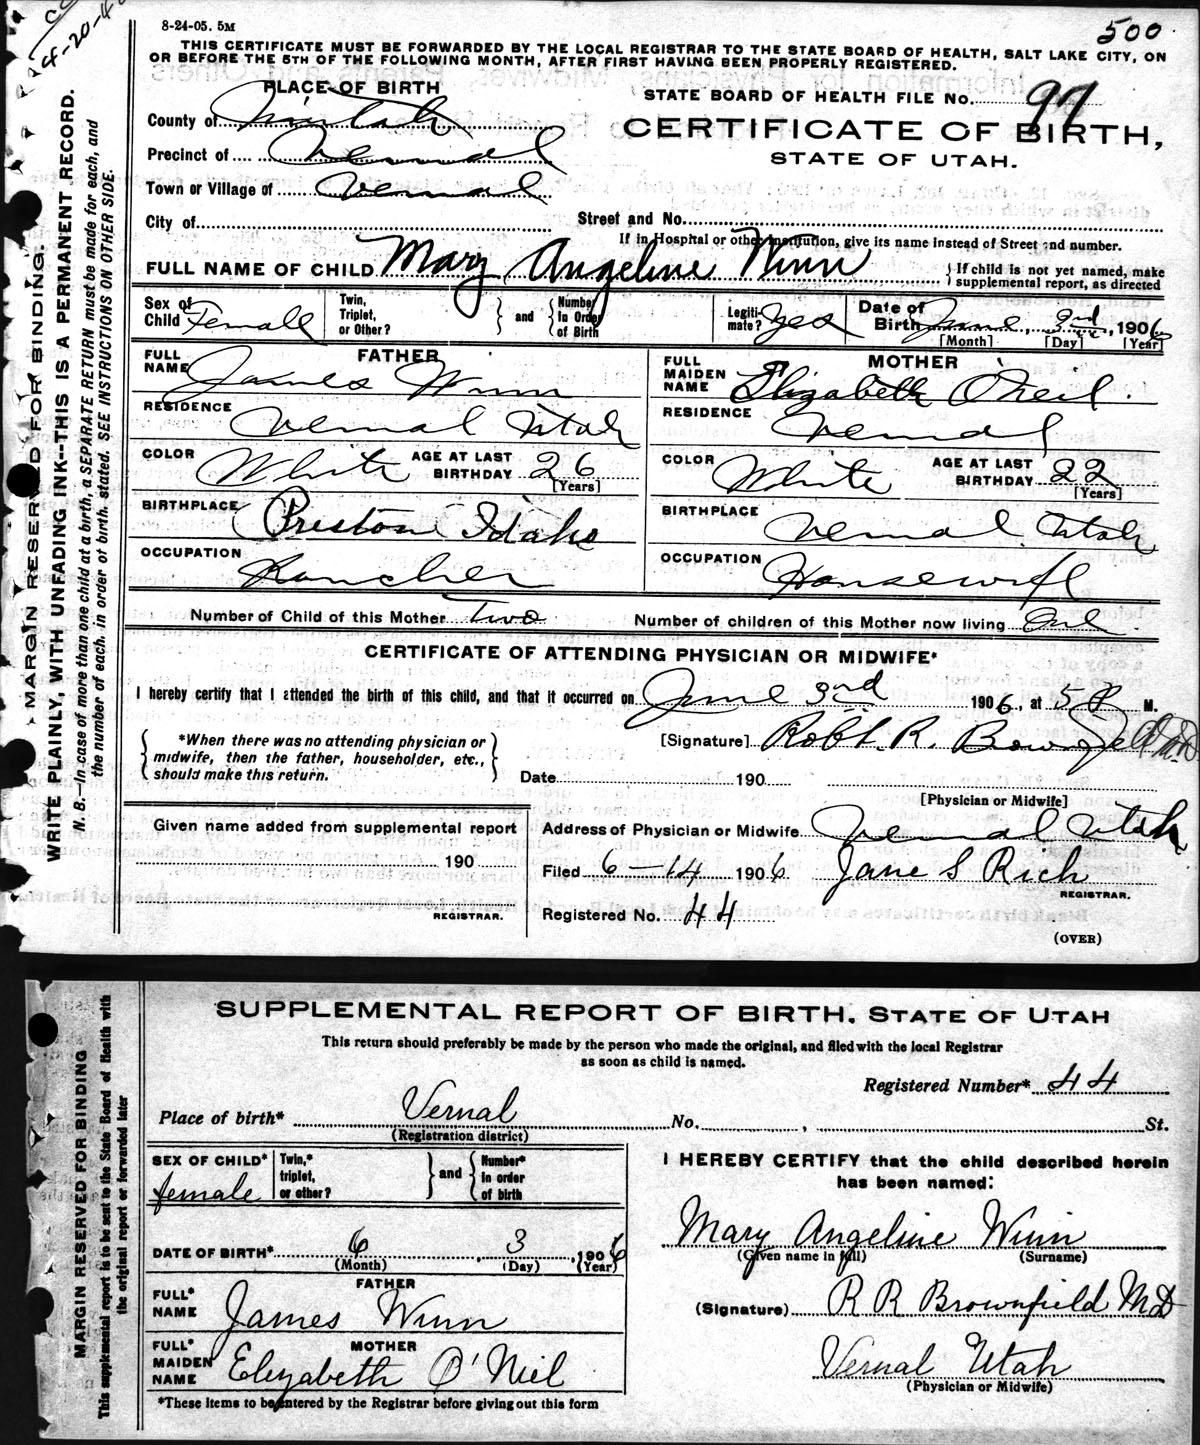 4-20-4
8-24-05. 5M
500
THIS CERTIFICATE MUST BE FORWARDED BY THE LOCAL REGISTRAR TO THE STATE BOARD OF HEALTH, SALT LAKE CITY, ON
OR BEFORE THE 5TH OF THE FOLLOWING MONTH, AFTER FIRST HAVING BEEN PROPERLY REGISTERED.
MARGIN RESERVED FOR BINDING.
WRITE PLAINLY, WITH UNFADING INK--THIS IS A PERMANENT RECORD.
N. B.—In case of more than one child at a birth, a SEPARATE RETURN must be made for each, and
the number of each, in order of birth, stated. SEE INSTRUCTIONS ON OTHER SIDE.
PLACE OF BIRTH
STATE BOARD OF HEALTH FILE No. 97
County of Uintah
CERTIFICATE OF BIRTH,
Precinct of Vernal
STATE OF UTAH.
Town or Village of Vernal
City of
Street and No.
If in Hospital or other Institution, give its name instead of Street and number.
FULL NAME OF CHILD Mary Angeline Winn
If child is not yet named, make
supplemental report, as directed
Sex of Child Female
Twin, Triplet, or Other?
and
Number In Order of Birth
Legitimate? Yes
Date of Birth June, 3rd, 1906
[Month] [Day] [Year]
FATHER
FULL NAME James Winn
RESIDENCE Vernal Utah
COLOR White
AGE AT LAST BIRTHDAY 26
[Years]
BIRTHPLACE Preston Idaho
OCCUPATION Rancher
MOTHER
FULL MAIDEN NAME Elizabeth O'Neil
RESIDENCE Vernal
COLOR White
AGE AT LAST BIRTHDAY 22
[Years]
BIRTHPLACE Vernal Utah
OCCUPATION Housewife
Number of Child of this Mother Two
Number of children of this Mother now living One
CERTIFICATE OF ATTENDING PHYSICIAN OR MIDWIFE*
I hereby certify that I attended the birth of this child, and that it occurred on June 3rd 1906, at 5 P M.
*When there was no attending physician or
midwife, then the father, householder, etc.,
should make this return.
[Signature] Robt. R. Brownfield M.D.
Date 190
[Physician or Midwife]
Given name added from supplemental report
190
REGISTRAR.
Address of Physician or Midwife Vernal Utah
Filed 6-14 1906 Jane S Rich
REGISTRAR.
Registered No. 44
(OVER)
MARGIN RESERVED FOR BINDING
This supplemental report is to be sent to the State Board of Health with
the original report or forwarded later
SUPPLEMENTAL REPORT OF BIRTH, STATE OF UTAH
This return should preferably be made by the person who made the original, and filed with the local Registrar
as soon as child is named.
Registered Number* 44
Place of birth* Vernal No. , St.
(Registration district)
SEX OF CHILD* female
Twin,* triplet, or other?
and
Number* in order of birth
DATE OF BIRTH* 6, 3, 1906
(Month) (Day) (Year)
FATHER
FULL* NAME James Winn
MOTHER
FULL* MAIDEN NAME Elizabeth O'Niel
*These items to be entered by the Registrar before giving out this form
I HEREBY CERTIFY that the child described herein
has been named:
Mary Angeline Winn
(Given name in full) (Surname)
(Signature) R R Brownfield MD
Vernal Utah
(Physician or Midwife)